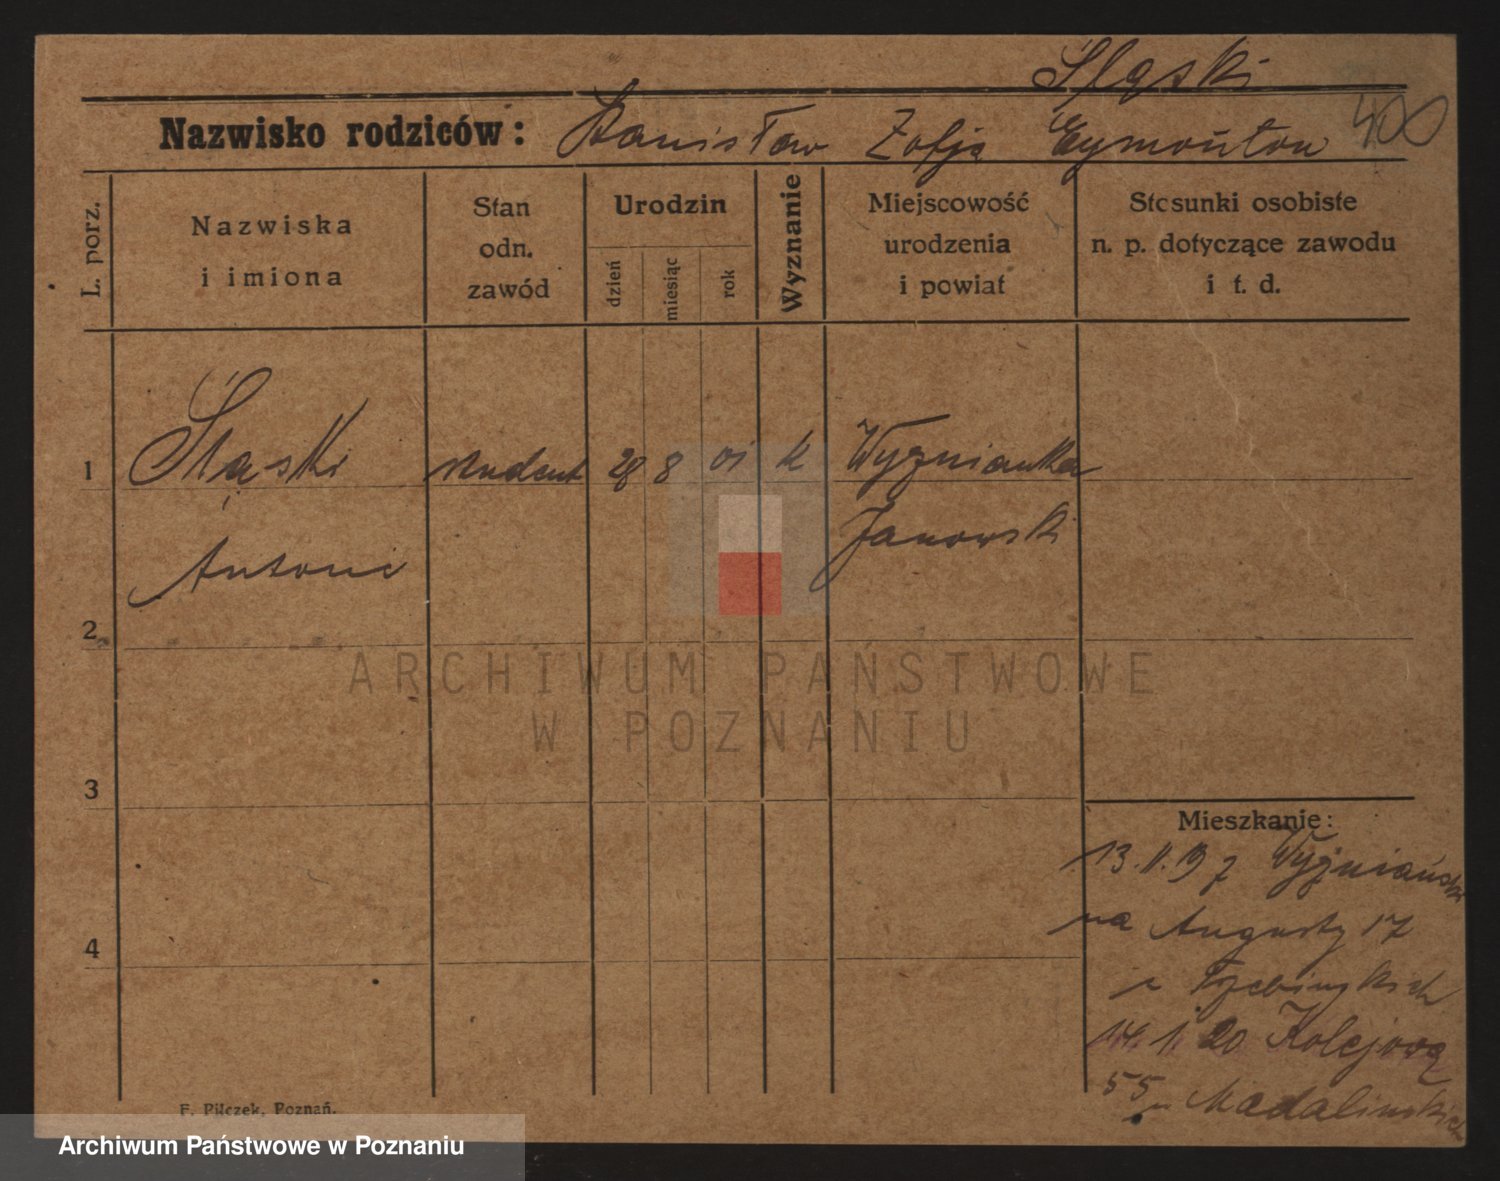 Śląski
Nazwisko rodziców: Stanisław Zofja 400
L. porz.
Nazwiska
i imiona
Stan
odn.
zawód
Urodzin
dzień
miesiąc
rok
Wyznanie
Miejscowość
urodzenia
i powiat
Stosunki osobiste
n. p. dotyczące zawodu
i t. d.
1 Śląski student 28 8 01 k
Antoni Janowski
2
3
4
Mieszkanie:
13.II.19 z
na Augusty 17
14.1.20 Kolejową
55 Madalinskich
F. Pilczek, Poznań.
ARCHIWUM PAŃSTWOWE
W POZNANIU
Archiwum Państwowe w Poznaniu